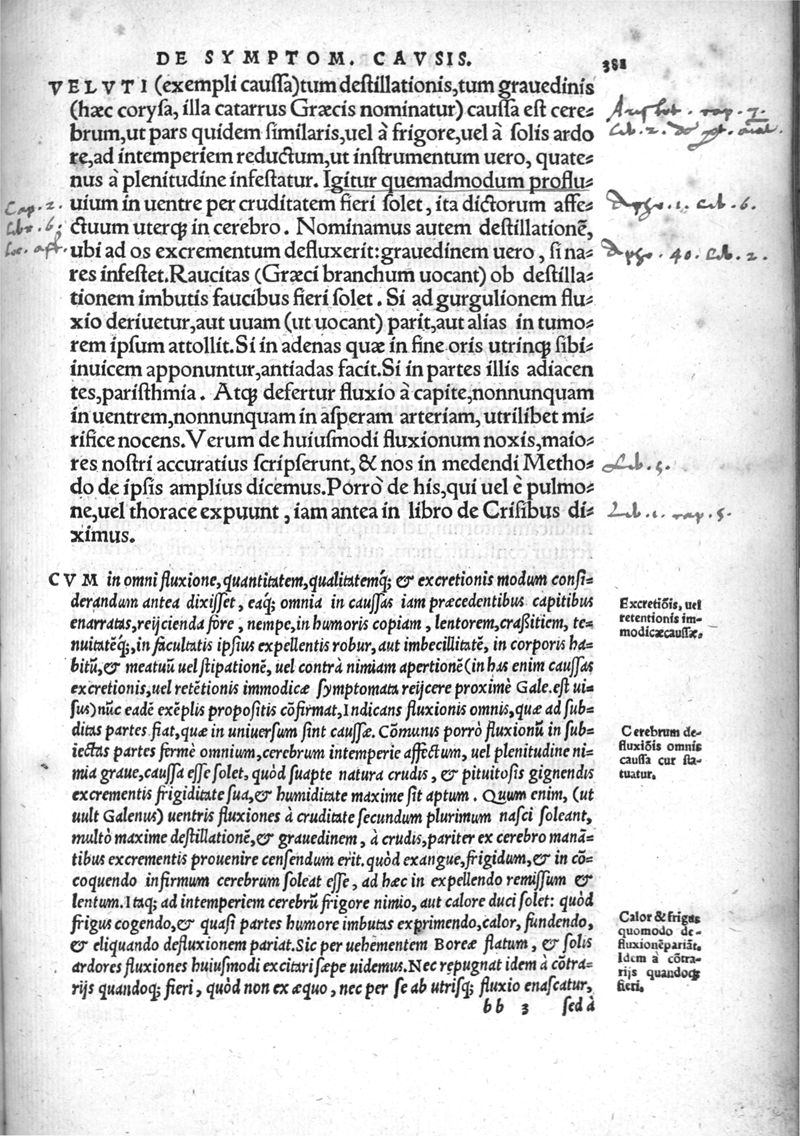 DE SYMPTOM. CAVSIS.
381
VELVTI (exempli caussa) tum destillationis, tum grauedinis
(hæc corysa, illa catarrus Græcis nominatur) caussa est cere⸗
brum, ut pars quidem similaris, uel à frigore, uel à solis ardo
re, ad intemperiem reductum, ut instrumentum uero, quate⸗
nus à plenitudine infestatur. Igitur quemadmodum proflu⸗
uium in uentre per cruditatem fieri solet, ita dictorum affe⸗
ctuum uterq; in cerebro. Nominamus autem destillationē,
ubi ad os excrementum defluxerit: grauedinem uero, si na⸗
res infestet. Raucitas (Græci branchum uocant) ob destilla⸗
tionem imbutis faucibus fieri solet. Si ad gurgulionem flu⸗
xio deriuetur, aut uuam (ut uocant) parit, aut alias in tumo⸗
rem ipsum attollit. Si in adenas quæ in fine oris utrinq; sibi⸗
inuicem apponuntur, antiadas facit. Si in partes illis adiacen
tes, paristhmia. Atq; defertur fluxio à capite, nonnunquam
in uentrem, nonnunquam in asperam arteriam, utrilibet mi⸗
rifice nocens. Verum de huiusmodi fluxionum noxis, maio⸗
res nostri accuratius scripserunt, & nos in medendi Metho⸗
do de ipsis amplius dicemus. Porrò de his, qui uel è pulmo⸗
ne, uel thorace expuunt, iam antea in libro de Crisibus di⸗
ximus.
Cap. 2.
Libr. 6.
loc. aff.
Aristot. cap. 7.
Lib. 2. de
Apho. 1. Lib. 6.
Apho. 40. Lib. 2.
Lib. 5.
Lib. 1. cap. 5.
CVM in omni fluxione, quantitatem, qualitatemq́; & excretionis modum consi⸗
derandum antea dixisset, eaq́; omnia in caussas iam præcedentibus capitibus
enarratas, reijcienda fore, nempe, in humoris copiam, lentorem, craßitiem, te⸗
nuitatēq́;, in facultatis ipsius expellentis robur, aut imbecillitatē, in corporis ha⸗
bitū, & meatuū uel stipationē, uel contrà nimiam apertionē (in has enim caussas
excretionis, uel retētionis immodicæ symptomata reijcere proximè Gale. est ui⸗
sus) nūc eadē exēplis propositis cōfirmat, Indicans fluxionis omnis, quæ ad sub⸗
ditas partes fiat, quæ in uniuersum sint caussæ. Cōmunis porrò fluxionū in sub⸗
iectas partes fermè omnium, cerebrum intemperie affectum, uel plenitudine ni⸗
mia graue, caussa esse solet, quòd suapte natura crudis, & pituitosis gignendis
excrementis frigiditate sua, & humiditate maxime sit aptum. Quum enim, (ut
uult Galenus) uentris fluxiones à cruditate secundum plurimum nasci soleant,
multò maxime destillationē, & grauedinem, à crudis, pariter ex cerebro manā⸗
tibus excrementis prouenire censendum erit. quòd exangue, frigidum, & in cō⸗
coquendo infirmum cerebrum soleat esse, ad hæc in expellendo remissum &
lentum. Itaq; ad intemperiem cerebrū frigore nimio, aut calore duci solet: quòd
frigus cogendo, & quasi partes humore imbutas exprimendo, calor, fundendo,
& eliquando defluxionem pariat. Sic per uehementem Boreæ flatum, & solis
ardores fluxiones huiusmodi excitari sæpe uidemus. Nec repugnat idem à cōtra⸗
rijs quandoq; fieri, quòd non ex æquo, nec per se ab utrisq; fluxio enascatur,
bb 3 sed à
Excretiōis, uel
retentionis im⸗
modicæ caussæ.
Cerebrum de⸗
fluxiōis omnis
caussa cur sta⸗
tuatur.
Calor & frigus
quomodo de⸗
fluxionē pariāt.
Idem à cōtra⸗
rijs quandoq;
fieri.